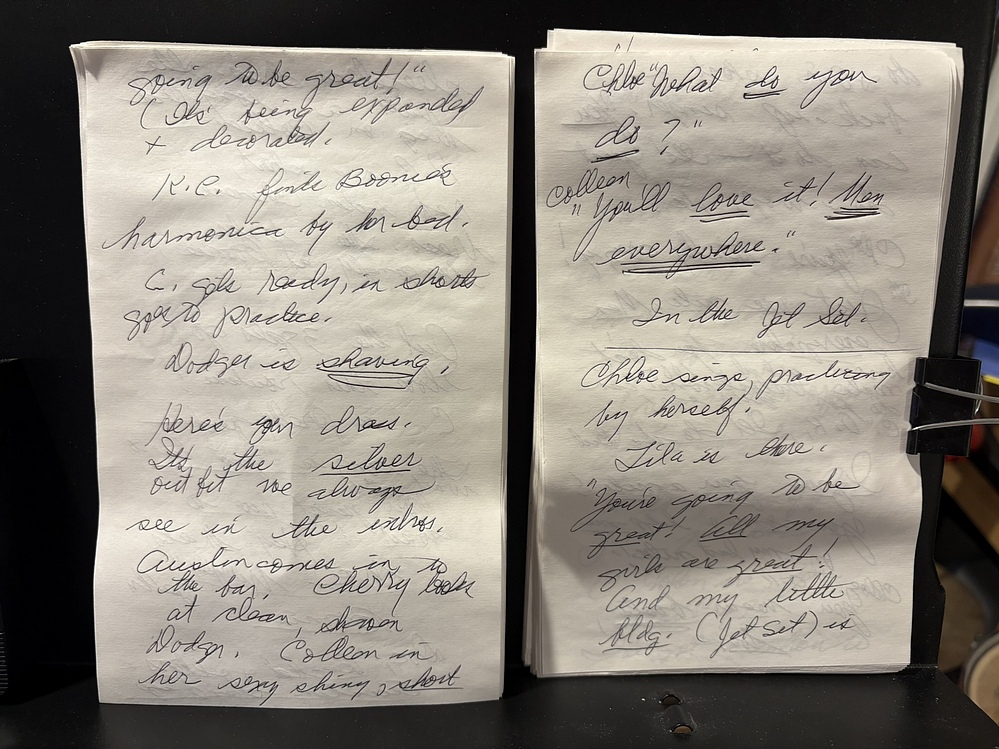 going to be great!"
(Its being expanded
+ decorated.
K.C. finds Boone's
harmonica by her bed.
C. gets ready, in shorts
goes to practice.
Dodger is shaving.
Here's your dress.
Its the silver
outfit we always
see in the intros.
Austin comes in to
the bar, Cherry looks
at clean, shaven
Dodger. Colleen in
her sexy shiny, short
Chloe "What do you
do?"
Colleen
"You'll love it! Men
everywhere."
In the Jet Set.
Chloe sings, practicing
by herself.
Lila is there.
"You're going to be
great! All my
girls are great!
And my little
bldg. (Jet Set) is